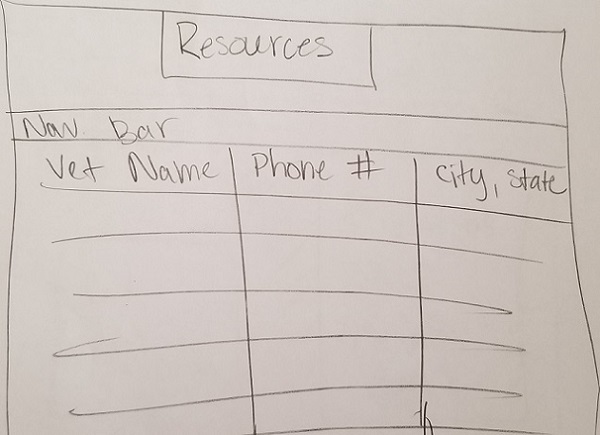 Resources
Nav Bar
Vet Name Phone # City, State